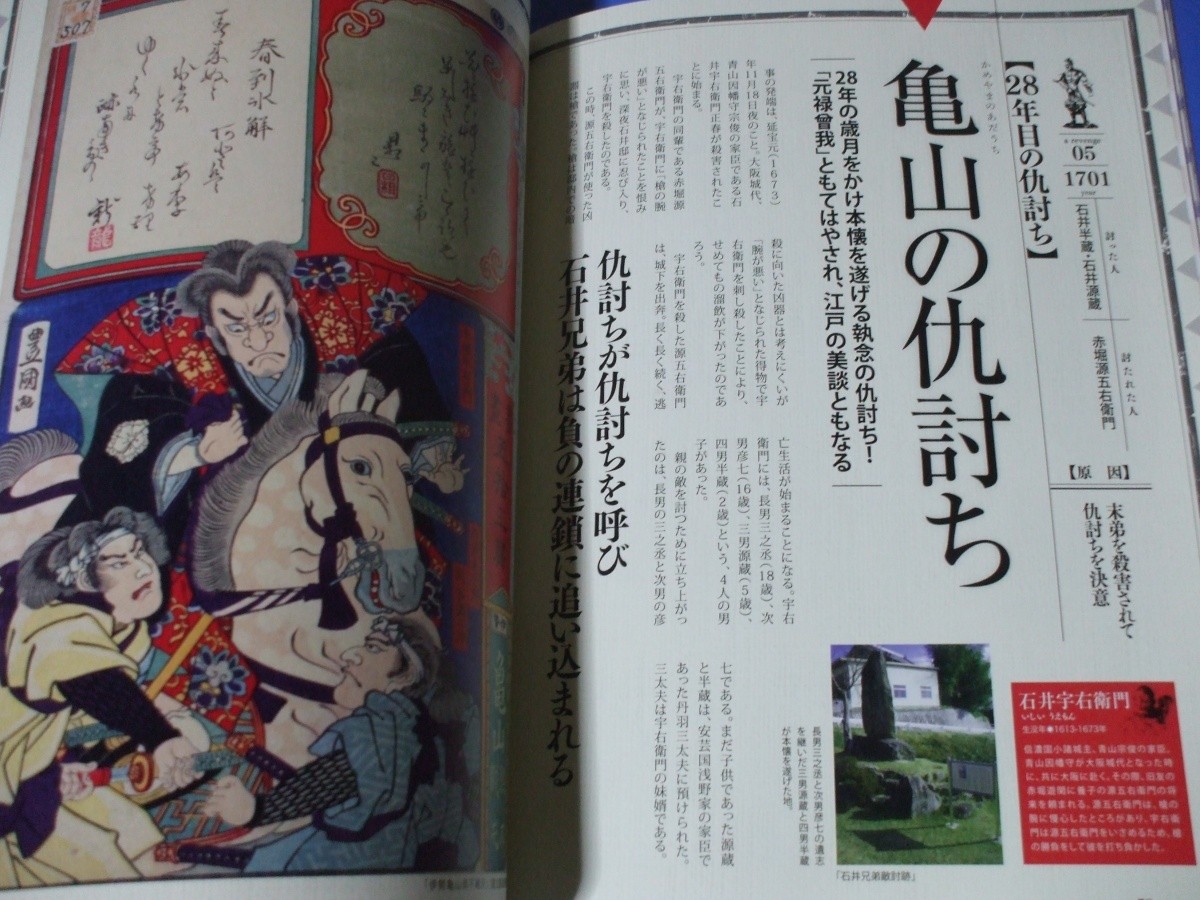 【28年目の仇討ち】
a revenge
05
1701
year
討った人
石井半蔵・石井源蔵
討たれた人
赤堀源五右衛門
【原　因】
末弟を殺害されて
仇討ちを決意
かめやまのあだうち
亀山の仇討ち
28年の歳月をかけ本懐を遂げる執念の仇討ち!
「元禄曾我」ともてはやされ、江戸の美談ともなる
事の発端は、延宝元（1673）
年11月18日夜のこと。大阪城代、
青山因幡守宗俊の家臣である石
井宇右衛門正春が殺害されたこ
とに始まる。
宇右衛門の同輩である赤堀源
五右衛門が、宇右衛門に「槍の腕
が悪い」となじられたことを恨み
に思い、深夜石井邸に忍び入り、
宇右衛門を殺したのである。
この時、源五右衛門が使った凶
殺に向いた凶器とは考えにくいが
「腕が悪い」となじられた得物で宇
右衛門を刺し殺したことにより、
せめてもの溜飲が下がったのであ
ろう。
宇右衛門を殺した源五右衛門
は、城下を出奔。長く長く続く、逃
仇討ちが仇討ちを呼び
石井兄弟は負の連鎖に追い込まれる
亡生活が始まることになる。宇右
衛門には、長男三之丞（18歳）、次
男彦七（16歳）、三男源蔵（5歳）、
四男半蔵（2歳）という、4人の男
子があった。
親の敵を討つために立ち上がっ
たのは、長男の三之丞と次男の彦
七である。まだ子供であった源蔵
と半蔵は、安芸国浅野家の家臣で
あった丹羽三太夫に預けられた。
三太夫は宇右衛門の妹婿である。
長男三之丞と次男彦七の遺志
を継いだ三男源蔵と四男半蔵
が本懐を遂げた地。
「石井兄弟敵討跡」
石井宇右衛門
いしい うえもん
生没年●1613-1673年
信濃国小諸城主、青山宗俊の家臣。
青山因幡守が大阪城代となった時
に、共に大阪に赴く。その際、旧友の
赤堀遊閑に養子の源五右衛門の将
来を頼まれる。源五右衛門は、槍の
腕に慢心したところがあり、宇右衛
門は源五右衛門をいさめるため、槍
の勝負をして彼を打ち負かした。
春到氷解
豊國画